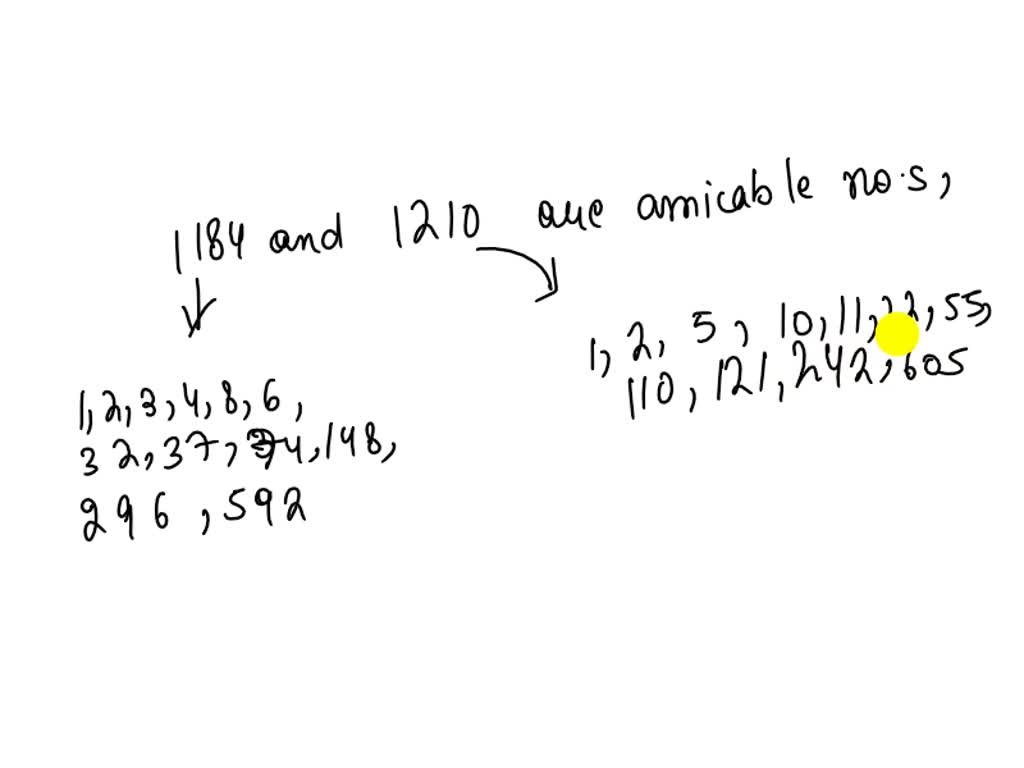 1184 and 1210 are amicable no.s,
1, 2, 5, 10, 11, 22, 55,
110, 121, 242, 605
1, 2, 3, 4, 8, 6,
32, 37, 74, 148,
296, 592